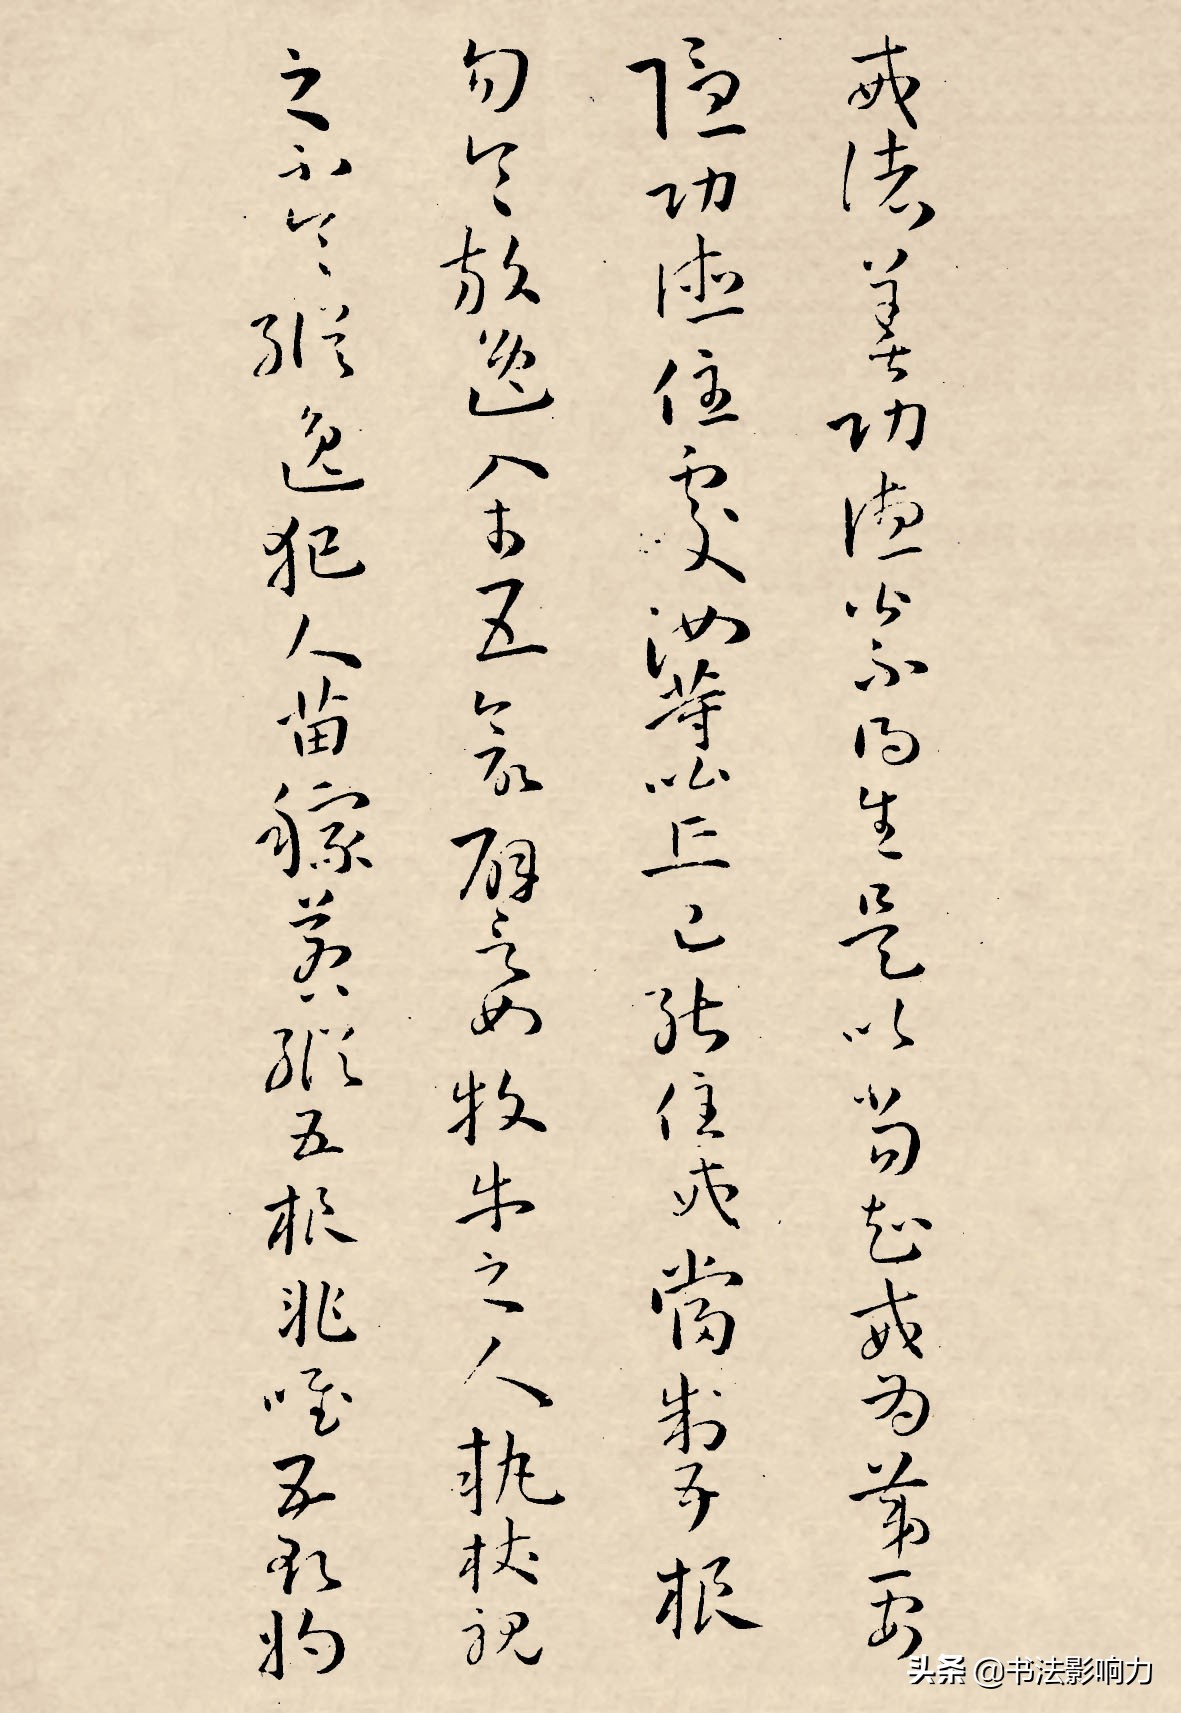 戒諸善功德皆不得生是以當知戒為第一安
隱功德住處汝等比丘已能住戒當制五根
勿令放逸入於五欲譬如牧牛之人執杖視
之不令縱逸犯人苗稼若縱五根非唯五欲將
头条 @书法影响力